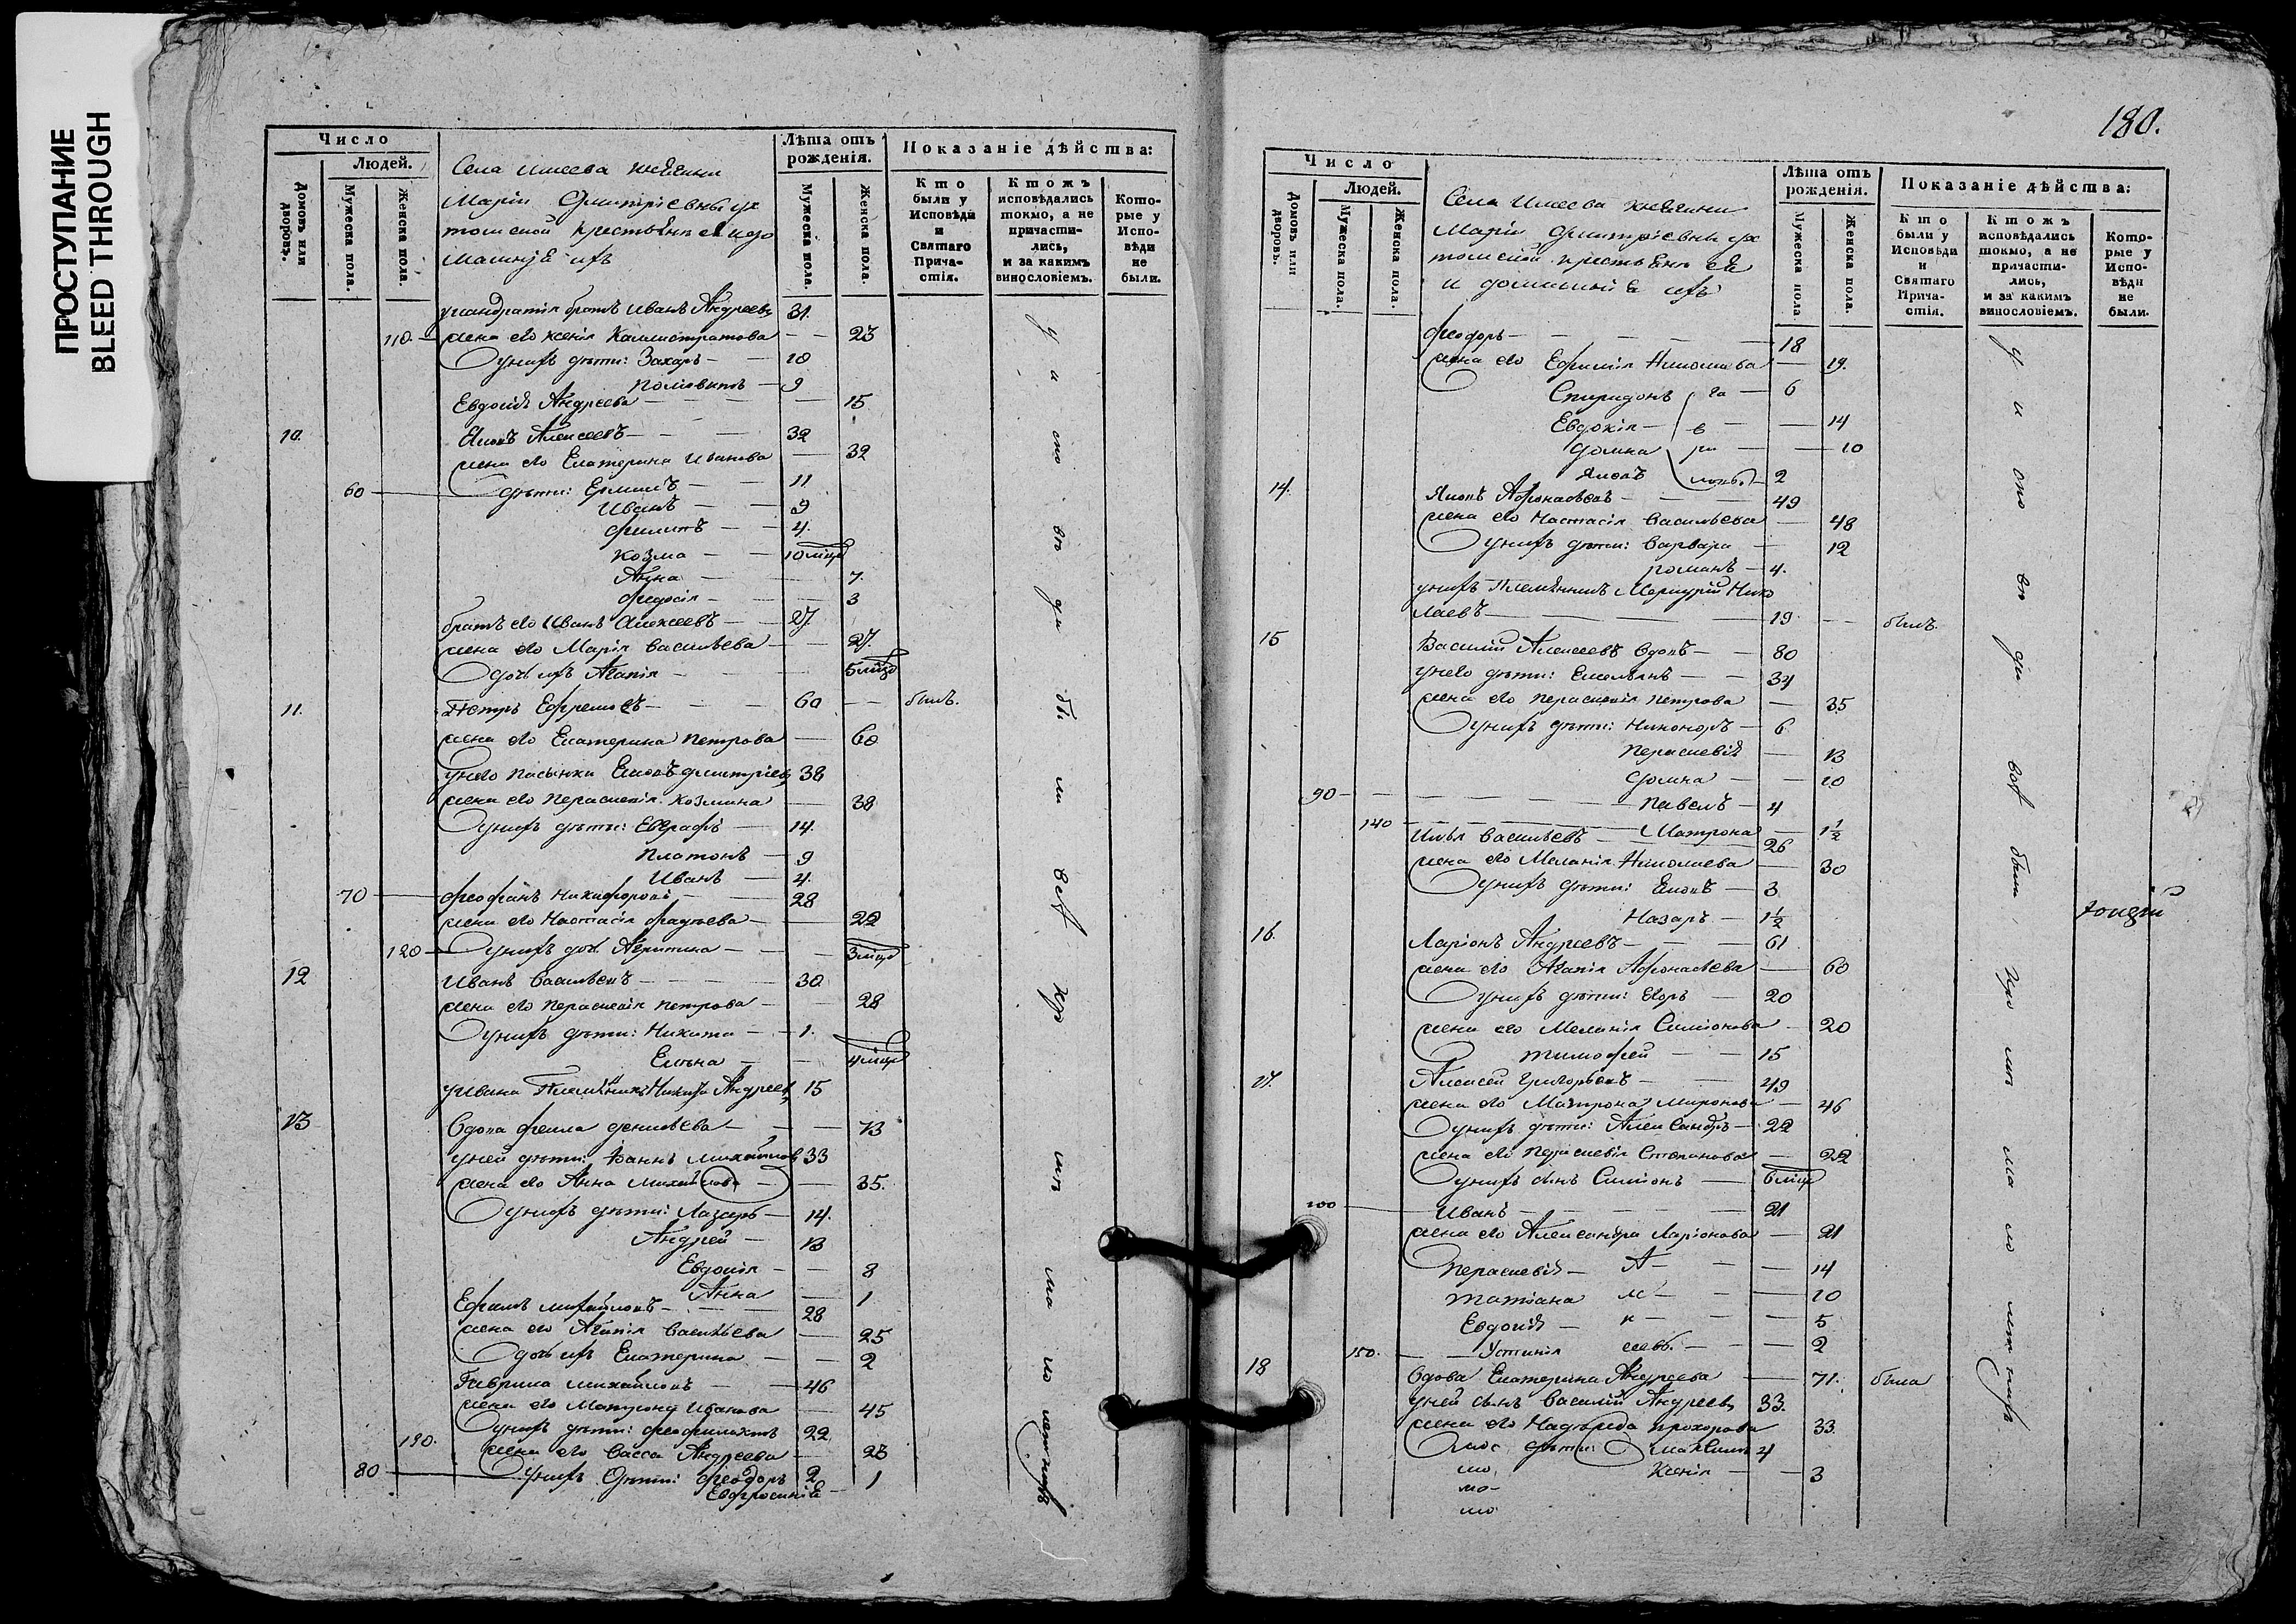 ПРОСТУПАНИЕ
BLEED THROUGH
Число
Людей.
Домовъ или дворовъ.
Мужеска пола.
Женска пола.
Лѣта отъ рожденія.
Мужеска пола.
Женска пола.
Показаніе дѣйства:
Кто были у Исповѣди и Святаго Причастія.
Ктожъ исповѣдались токмо, а не причастились, и за какимъ винословіемъ.
Которые у Исповѣди не были.
Села княжны
Маріи Дмитріевны
крестьяне
ихъ
братъ Иванъ Андреевъ 31.
110 жена его Ксенія Калистратова 23
у нихъ дѣти: Захаръ 10
9
Евдокія Андреева 15
10. Яковъ Алексеевъ 32
жена его Екатерина Иванова 32
60 дѣти: Ермилъ 11
Иванъ 9
Филипъ 4.
Козма 10 мцов
Анна 7.
Федосія 3
братъ его Иванъ Алексеевъ 27
жена его Марія Васильева 27.
дочь ихъ Агапія 5 мцов
11. Петръ Ефремовъ 60 былъ.
жена его Екатерина Петрова 60
у него пасынки Дмитріев 38
жена его Параскевія Козмина 38
у нихъ дѣти: Евграфъ 14.
Платонъ 9
Иванъ 4.
70 Феофанъ Никифоровъ 28
жена его Настасія Фадѣева 22
120 у нихъ доч. Акилина 3 мцов
12 Иванъ Васильевъ 30
жена его Параскевія Петрова 28
у нихъ дѣти: Никита 1.
Елена 4 мцов
у Ивана Племянникъ Никита Андреев 15
13 Вдова Фекла Денисьева 73
у ней дѣти: Михайлов 33
жена его Анна Михайлова 35.
у нихъ дѣти: Лазарь 14.
Андрей 13
Евдокія 8
Анна 1
Ефимъ Михайловъ 28
жена его Агапія Васильева 25
дочь ихъ Екатерина 2
Гаврила Михайловъ 46
жена его Матрона Иванова 45
у нихъ дѣти: Феофилактъ 22
130. жена его Васса Андреева 23
80 у нихъ дѣти: Феодоръ 2
1
у и спо вѣ ди бы ли всѣ кр мѣ ма ло лет нихъ
180.
Число
Людей.
Домовъ или дворовъ.
Мужеска пола.
Женска пола.
Лѣта отъ рожденія.
Мужеска пола.
Женска пола.
Показаніе дѣйства:
Кто были у Исповѣди и Святаго Причастія.
Ктожъ исповѣдались токмо, а не причастились, и за какимъ винословіемъ.
Которые у Исповѣди не были.
Села княжны
Маріи Дмитріевны
крестьяне
и домашніе ихъ
Феодоръ 18
жена его Ефимія Николаева 19.
Спиридонъ 6
Евдокія 14
Домна 10
Яковъ 2
14. Яковъ Афонасьевъ 49
жена его Настасія Васильева 48
у нихъ дѣти: Варвара 12
Романъ 4.
у нихъ Племянникъ Меркурій Нико
лаевъ 19. былъ.
15 Василій Алексеевъ вдовъ 80
у него дѣти: Емельянъ 34
жена его Параскевія Петрова 35
у нихъ дѣти: Никоноръ 6
Параскевія 13
Домна 10
90 Павелъ 4
140 Матрона 1½
Илья Васильевъ 26
жена его Меланія Николаева 30
у нихъ дѣти: 3
Назаръ 1½
16. Ларіонъ Андреевъ 61
жена его Агапія Афонасьева 60
у нихъ дѣти: Егоръ 20
жена его Меланія Симіонова 20
Тимофей 15
17. Алексей Григорьевъ 49
жена его Матрона Миронова 46
у нихъ дѣти: Александръ 22
жена его Параскевія Степанова 22
у нихъ сынъ Симіонъ 6 мцов
100 Иванъ 21
жена его Александра Ларіонова 21
Параскевія 14
Татіана 10
Евдокія 5
150. Устинія 2
18 Вдова Екатерина Андреева 71. была
у ней сынъ Василій Андреев 33.
жена его Надежда Прохорова 33
дѣти: Максимъ 4
Ксенія 3
у и спо вѣ ди всѣ были кро мѣ ма ло лет нихъ